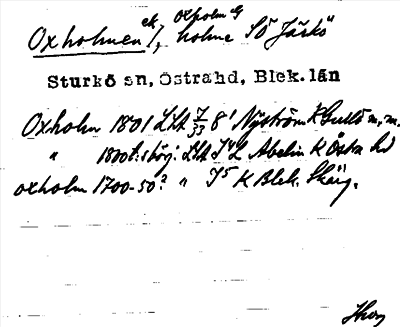 Oxholmen ek, oxholm G
/, holme SO Järkö
Sturkö sn, Östrahd, Blek. län
Oxholm 1801 LSA 7/33 8' Nyström K Gullö m.m.
" 1800t:s börj: LSA I4L Abelin K Östra hd
oxholm 1700-50? " I5 K Blek. Skärg.